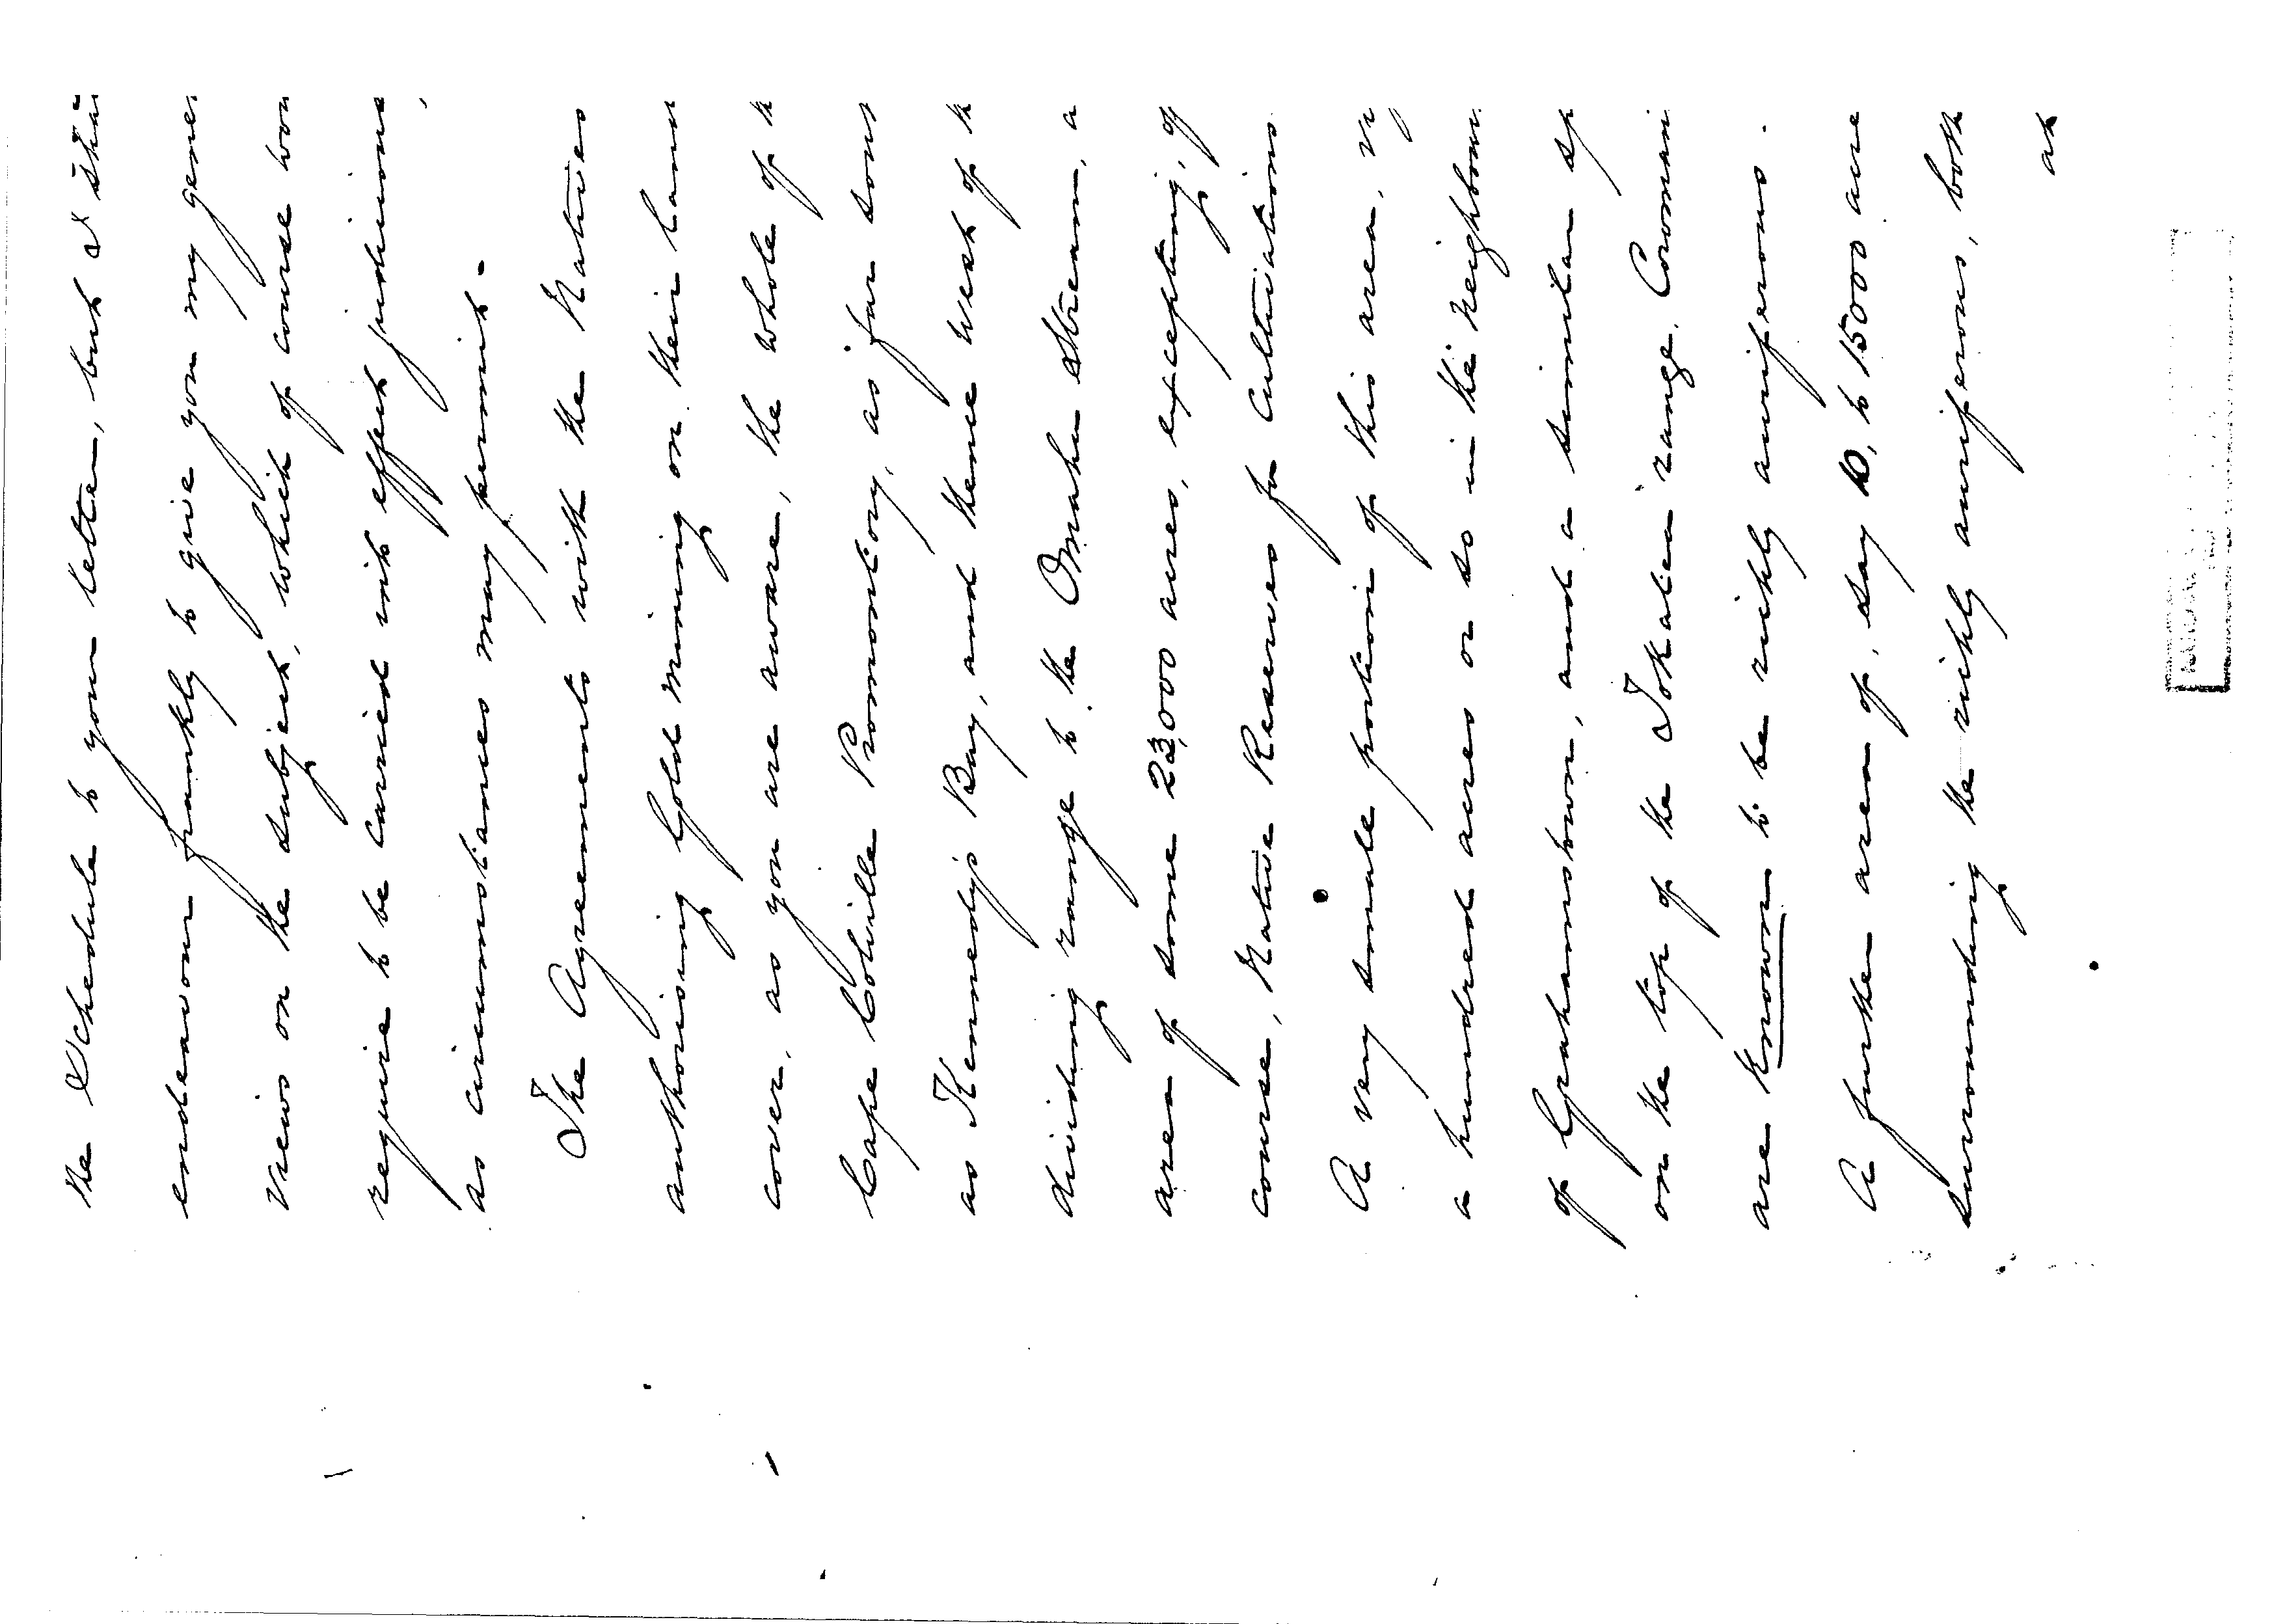 the Schedule to your letter, but I shal
endeavour frankly to give you my gener
views on the subject, which of course wou
require to be carried into effect judicious
as circumstances may permit.
The Agreements with the Natives
authorising Gold mining on their Lan
cover, as you are aware, the whole of th
Cape Colville Promontory, as far sout
as Kennedy's Bay, and thence West of th
dividing range to the Omahu Stream, a
area of some 23,000 acres, excepting, of
course, Native Reserves for Cultivations.
A very small portion of this area, viz
a hundred acres or so in the neighbour
of Grahamstown, and a similar sp
on the top of the Tokatea range, Coroman
are known to be richly auriferous.
A further area of, say 10, to 15000 acre
surrounding the richly auriferous, both
at